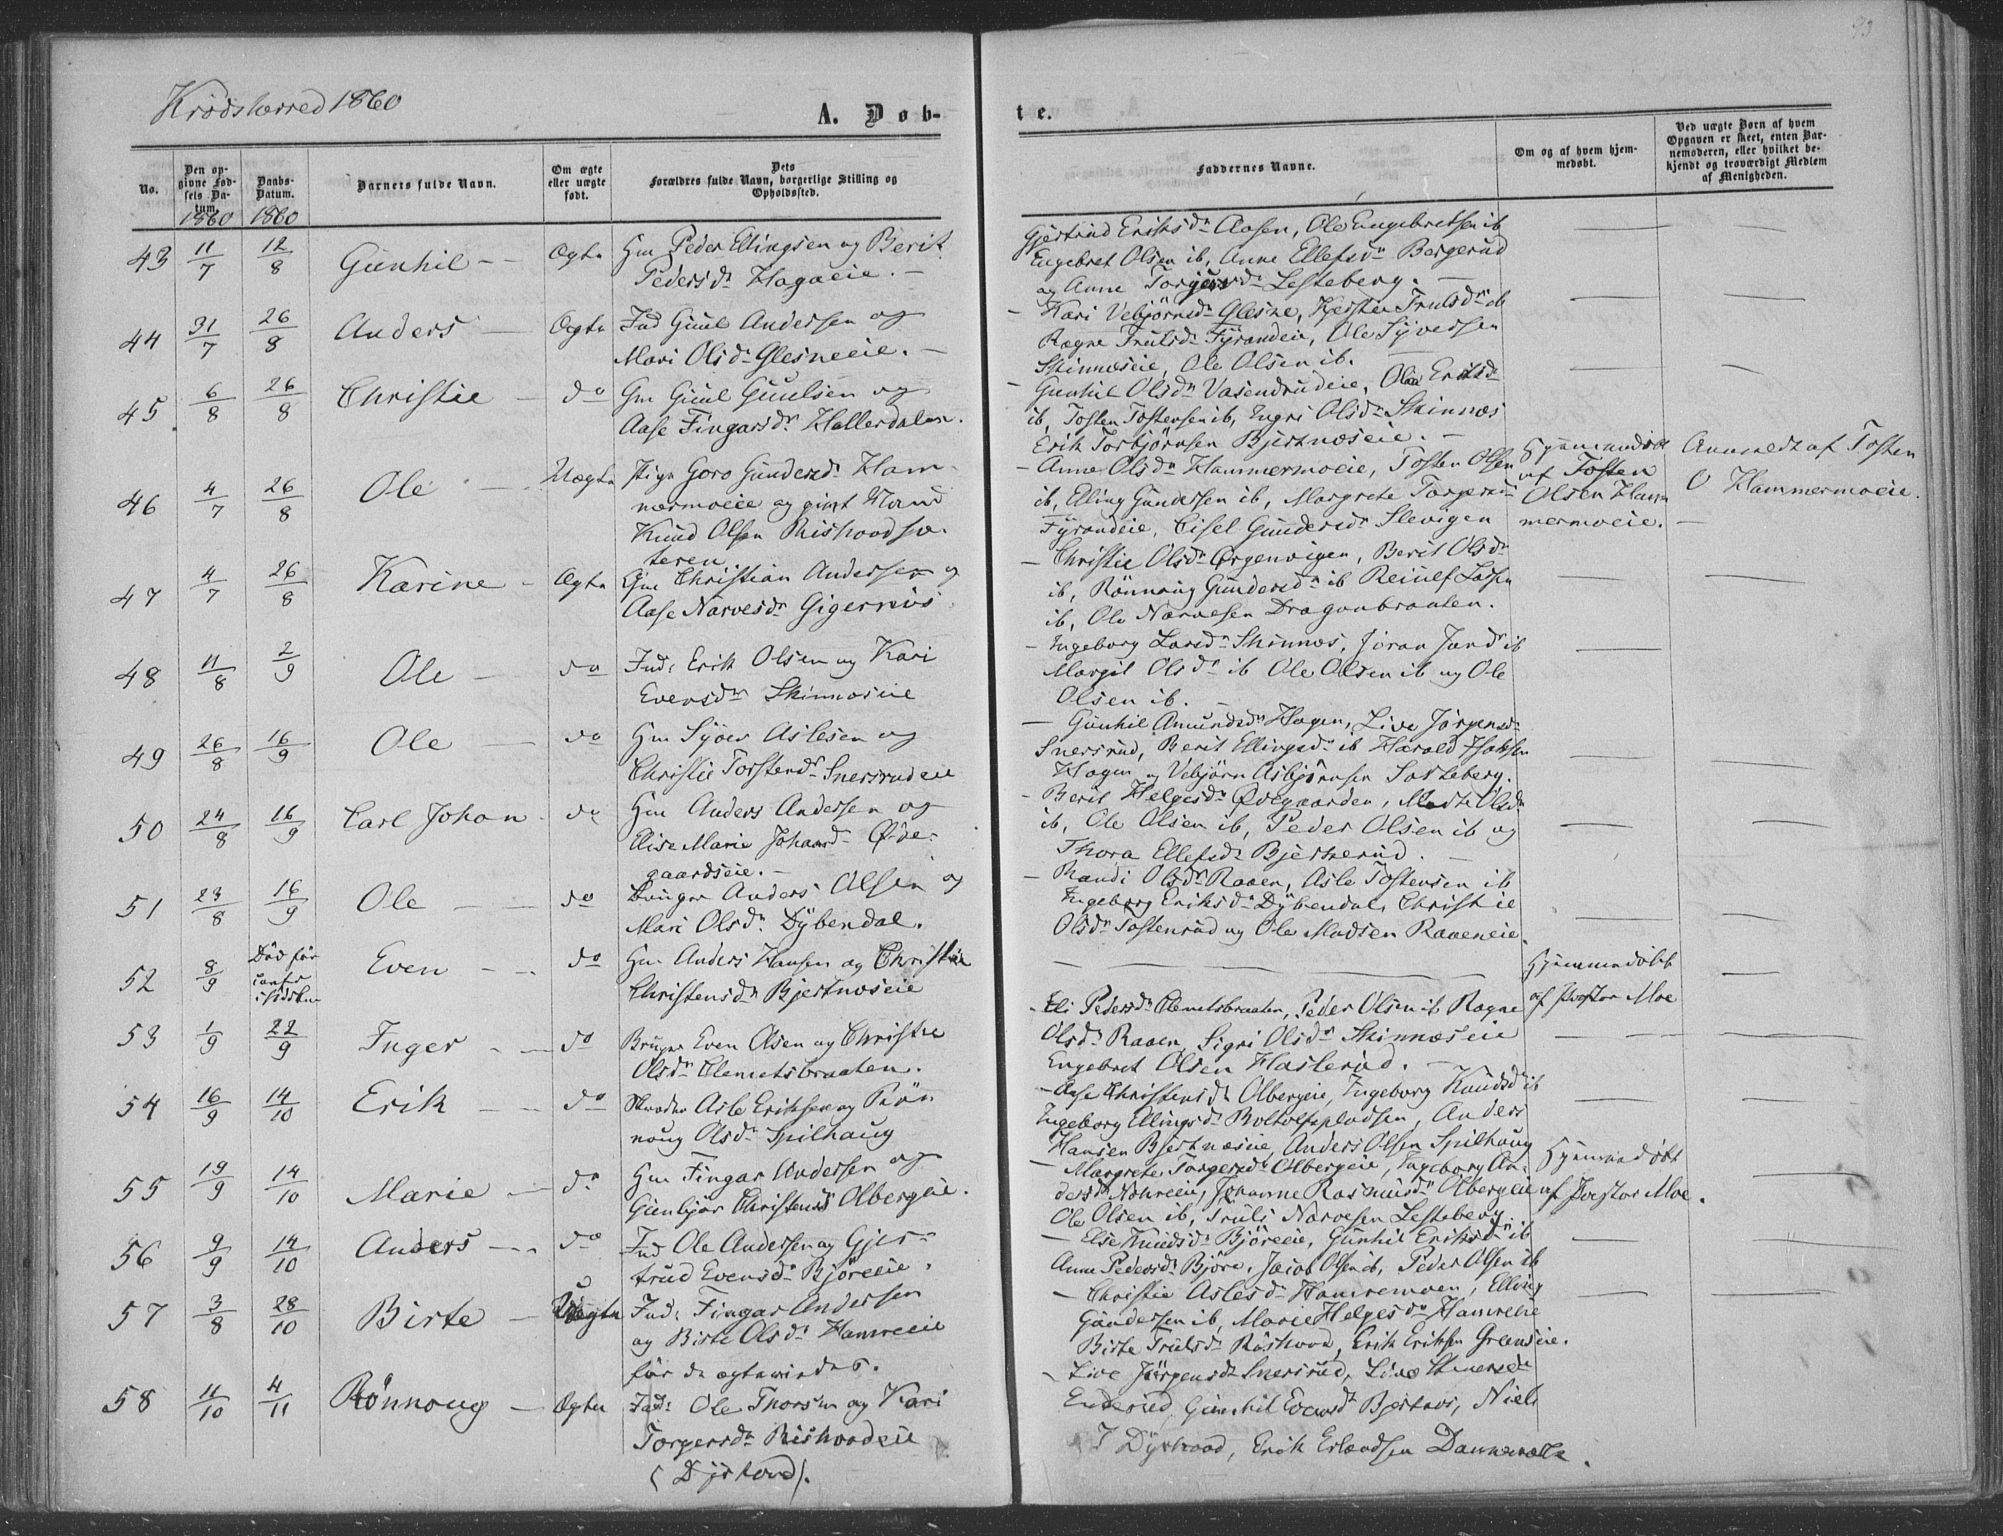 93
Krødsherred 1860
A. Døb-
te.
No.
Den op-
givne Fød-
sels Da-
tum.
1860
Daabs-
Datum.
1860
Barnets fulde Navn.
Om ægte
eller uægte
født.
Dets
Forældres fulde Navn, borgerlige Stilling og
Opholdssted.
Faddernes Navne.
Om og af hvem hjem-
medøbt.
Ved uægte Børn af hvem
Opgaven er skeet, enten Bar-
nemoderen, eller hvilket be-
kjendt og troværdigt Medlem
af Menigheden.
43 11/7 12/8 Gunhil Ægte Hm Peder Ellingsen og Berit
Pedersdr Hagaeie.
Gjertrud Eriksdr Aasen, Ole Engebretsen ib
Engebret Olsen ib, Anne Ellefsdr Bergerud
og Anne Torgersdr Lesteberg.
44 31/7 26/8 Anders Ægte Ind Guul Andersen og
Mari Olsdr Glesneeie.
Kari Vebjørnsdr Glesne, Kjersten Trulsdr ib
Ragne Trulsdr Fyrandeie, Ole Syversen
Skinnæseie, Ole Olsen ib.
45 6/8 26/8 Christie do Gm Guul Guulsen og
Aase Fingarsdr Hallerdalen.
Gunhil Olsdr Vasendrudeie, Olea Eriksdr
ib, Tosten Tostensen ib, Engri Olsdr Skinnæs
Erik Torbjørnsen Bjertnæseie.
46 4/7 26/8 Ole Uægte Pige Goro Gundersdr Ham-
mermoeie og gift Mand
Knud Olsen Riskoodsæ-
teren
Anne Olsdr Hammermoeie, Tosten Olsen
ib, Elling Gundersen ib, Margrete Torgersdr
Fyrandeie, Cisel Gundersdr Slevigen
Hjemmedøbt
af Tosten
Olsen Ham-
mermoeie.
Anmeldt af Tosten
O Hammermoeie.
47 4/7 26/8 Karine Ægte Gm Christian Andersen og
Aase Narvesdr Gigernæs.
Christie Olsdr Ørgenvigen, Berit Olsdr
ib, Rønnoug Gundersdr ib Reiulf Larsen
ib, Ole Narvesen Dragonbraaten.
48 11/8 2/9 Ole do Ind: Erik Olsen og Kari
Evensdr Skinnæseie
Ingeborg Larsdr Skinnæs, Jøran Jonsdr ib
Margit Olsdr ib Ole Olsen ib og Ole
Olsen ib.
49 26/8 16/9 Ole do Hm Syver Aslesen og
Christie Torstensdr Snersrudeie
Gunhil Amundsdr Hagen, Live Jørgensdr
Snersrud, Berit Ellingsdr ib Harald
Hagen og Vebjørn Asbjørnsen
50 24/8 16/9 Carl Johan do Hm Anders Andersen og
Elise Marie Johansdr Øde-
gaardseie.
Berit Helgesdr Ødegaarden, Marte Olsdr
ib, Ole Olsen ib, Peder Olsen ib og
Thora Ellefsdr Bjerkerud.
51 23/8 16/9 Ole do Bruger Anders Olsen og
Mari Olsdr Dybendal.
Randi Olsdr Raaen, Asle Tostensen ib
Ingeborg Eriksdr Dybendal, Christie
Olsdr Tostenrud og Ole Madsen Raaeneie
52 8/9 Død før
Even do Hm Anders Hansen og Christie
Christensdr Bjertnæseie
Hjemmedøbt
af Pastor Moe
53 1/9 22/9 Inger do Bruger Even Olsen og Christie
Olsdr Clemetsbraaten.
Eli Pedersdr Clemetsbraaten, Peder Olsen ib Ragne
Olsdr Raaen, Sigri Olsdr Skinnæseie
Engebret Olsen Haslerud.
54 16/9 14/10 Erik do Skræder Asle Eriksen og Røn-
noug Olsdr Spilhaug
Aase Christensdr Olbergeie, Ingeborg Knudsdr ib
Ingeborg Ellingsdr Boltolfspladsen, Anders
Hansen Bjertnæseie, Anders Olsen Spilhaug
55 19/9 14/10 Marie do Hm Fingar Andersen og
Gunbjør Christensdr Olbergeie.
Margrete Torgersdr Olbergeie, Ingeborg An-
dersdr Nohreeie, Johanne Rasmusdr Olbergeie
Ole Olsen ib, Truls Narvesen Lesteberg
Hjemmedøbt
af Pastor Moe.
56 9/9 14/10 Anders do Ind Ole Andersen og Gjer-
trud Evensdr Bjøreeie.
Else Knudsdr Bjøreeie, Gunhil Eriksdr ib
Anne Pedersdr Bjøre, Jacob Olsen ib, Peder Olsen ib
57 3/8 28/10 Birte Uægte Ind: Fingar Andersen
og Birte Olsdr Hamreeie
før de ægteviedes.
Christie Aslesdr Hamremoen, Elling
Gundersen ib, Marie Helgesdr Hamreeie
Birte Trulsdr Riskood, Erik Eriksen Grønseie.
58 11/10 4/11 Rønnoug Ægte Ind: Ole Thorsen og Kari
Torgersdr Riskoodeie
(Dyskood).
Live Jørgensdr Snersrud, Live Steenersdr
Enderud, Gunhil Evensdr Bjertnæs, Niels
T Dyskood, Erik Erlandsen